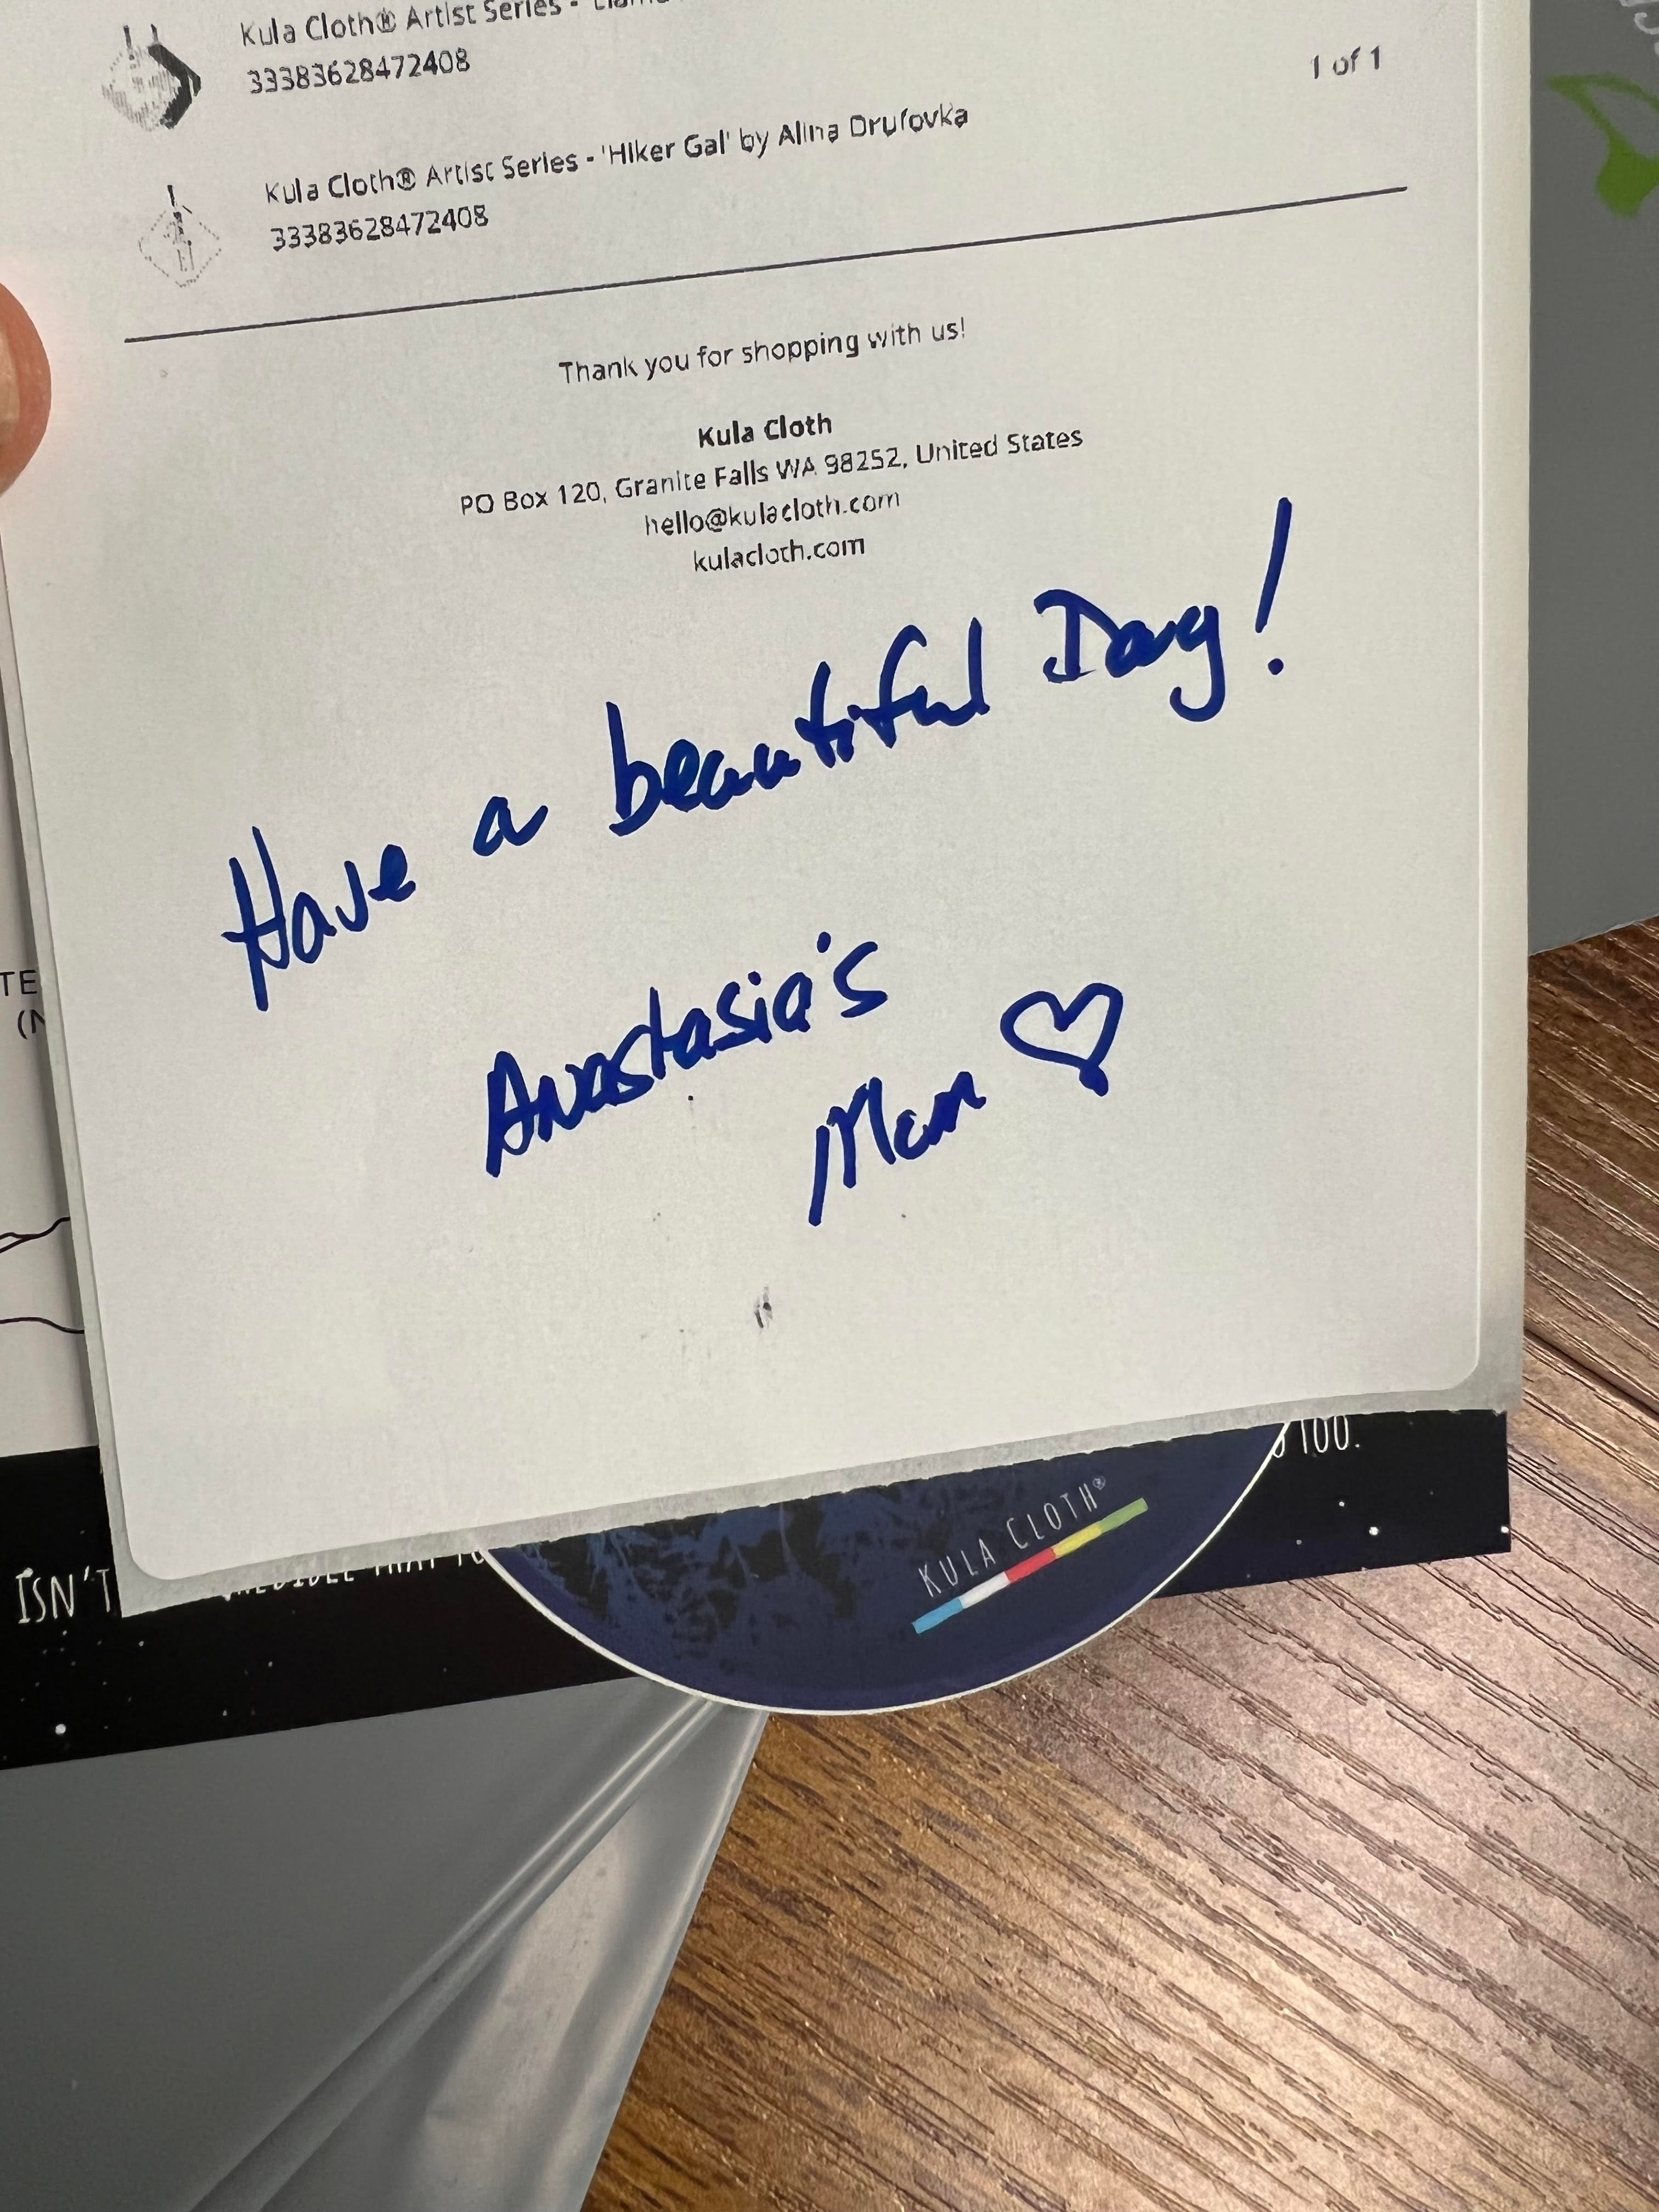 Kula Cloth® Artist Series -
33383628472408
1 of 1
Kula Cloth® Artist Series - 'Hiker Gal' by Alina Drufovka
33383628472408
Thank you for shopping with us!
Kula Cloth
PO Box 120, Granite Falls WA 98252, United States
hello@kulacloth.com
kulacloth.com
Have a beautiful Day!
Anastasia's
Mom
TE
(N
TOO.
KULA CLOTH®
ISN'T